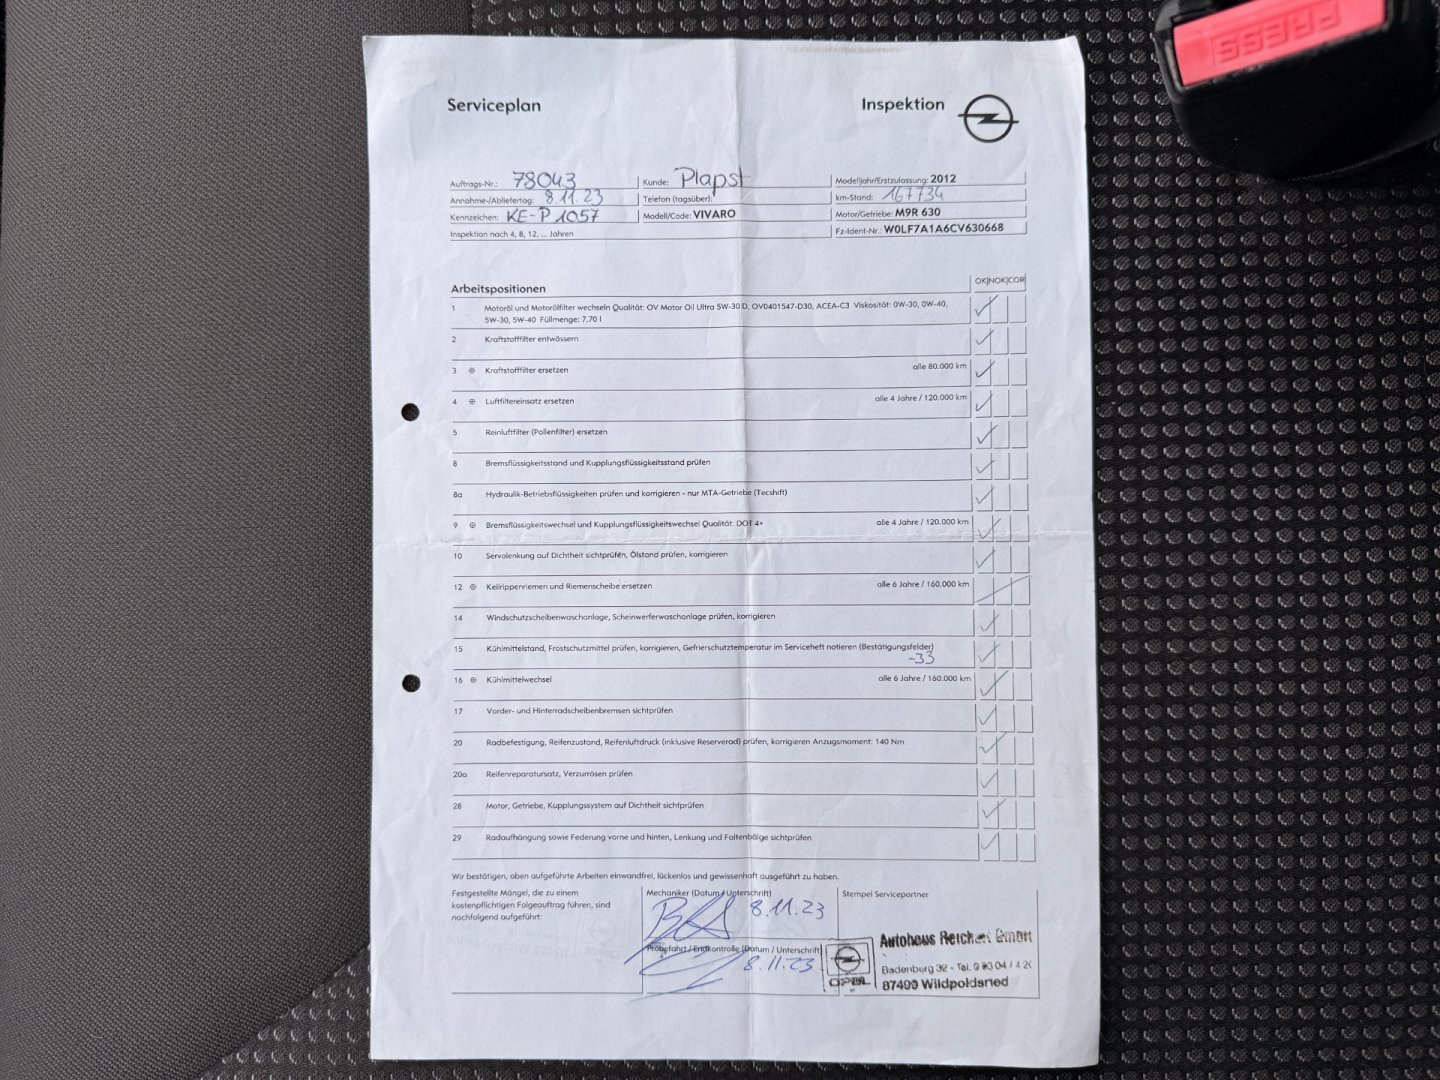 PRESS
Serviceplan
Inspektion
Auftrags-Nr.: 78043 Kunde: Plapst Modelljahr/Erstzulassung: 2012
Annahme-/Abliefertag: 8.11.23 Telefon (tagsüber): km-Stand: 167734
Kennzeichen: KE-P 1057 Modell/Code: VIVARO Motor/Getriebe: M9R 630
Inspektion nach 4, 8, 12, ... Jahren Fz-Ident-Nr.: W0LF7A1A6CV630668
Arbeitspositionen OK NOK COR
1 Motoröl und Motorölfilter wechseln Qualität: OV Motor Oil Ultra 5W-30 D, OV0401547-D30, ACEA-C3 Viskosität: 0W-30, 0W-40,
5W-30, 5W-40 Füllmenge: 7.70 l
2 Kraftstofffilter entwässern
3 ⊕ Kraftstofffilter ersetzen alle 80.000 km
4 ⊕ Luftfiltereinsatz ersetzen alle 4 Jahre / 120.000 km
5 Reinluftfilter (Pollenfilter) ersetzen
8 Bremsflüssigkeitsstand und Kupplungsflüssigkeitsstand prüfen
8a Hydraulik-Betriebsflüssigkeiten prüfen und korrigieren - nur MTA-Getriebe (Tecshift)
9 ⊕ Bremsflüssigkeitswechsel und Kupplungsflüssigkeitswechsel Qualität: DOT 4+ alle 4 Jahre / 120.000 km
10 Servolenkung auf Dichtheit sichtprüfen, Ölstand prüfen, korrigieren
12 ⊕ Keilrippenriemen und Riemenscheibe ersetzen alle 6 Jahre / 160.000 km
14 Windschutzscheibenwaschanlage, Scheinwerferwaschanlage prüfen, korrigieren
15 Kühlmittelstand, Frostschutzmittel prüfen, korrigieren, Gefrierschutztemperatur im Serviceheft notieren (Bestätigungsfelder)
-33
16 ⊕ Kühlmittelwechsel alle 6 Jahre / 160.000 km
17 Vorder- und Hinterradscheibenbremsen sichtprüfen
20 Radbefestigung, Reifenzustand, Reifenluftdruck (inklusive Reserverad) prüfen, korrigieren Anzugsmoment: 140 Nm
20a Reifenreparatursatz, Verzurrösen prüfen
28 Motor, Getriebe, Kupplungssystem auf Dichtheit sichtprüfen
29 Radaufhängung sowie Federung vorne und hinten, Lenkung und Faltenbälge sichtprüfen
Wir bestätigen, oben aufgeführte Arbeiten einwandfrei, lückenlos und gewissenhaft ausgeführt zu haben.
Festgestellte Mängel, die zu einem
kostenpflichtigen Folgeauftrag führen, sind
nachfolgend aufgeführt:
Mechaniker (Datum / Unterschrift)
8.11.23
Probefahrt / Endkontrolle (Datum / Unterschrift)
8.11.23
Stempel Servicepartner
OPEL
Autohaus GmbH
Badenburg 32 - Tel.
87499 Wildpoldsried